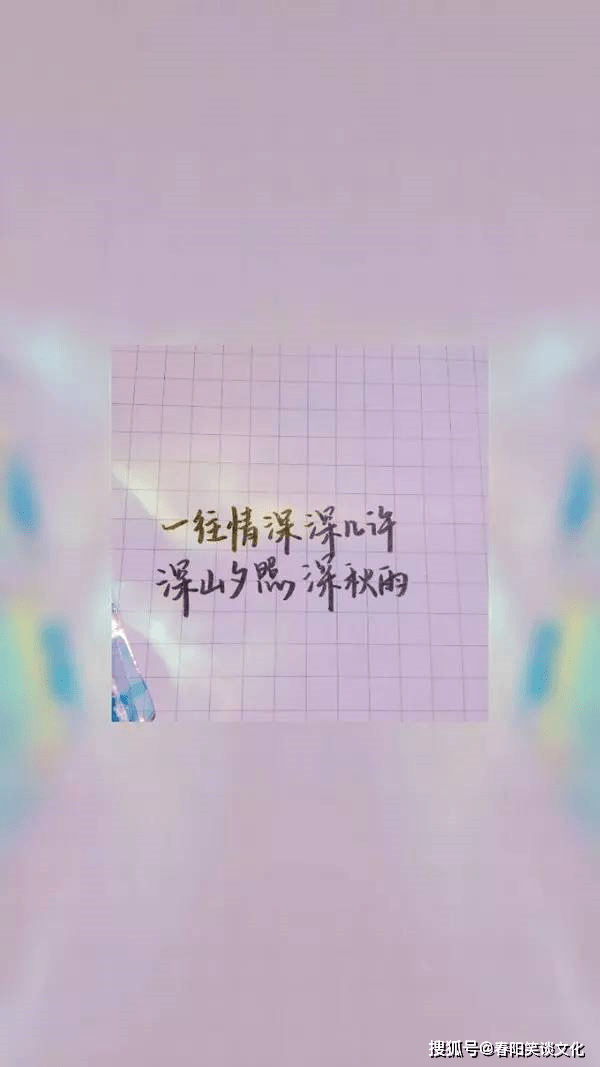 一往情深深几许
深山夕照深秋雨
搜狐号@春阳笑谈文化